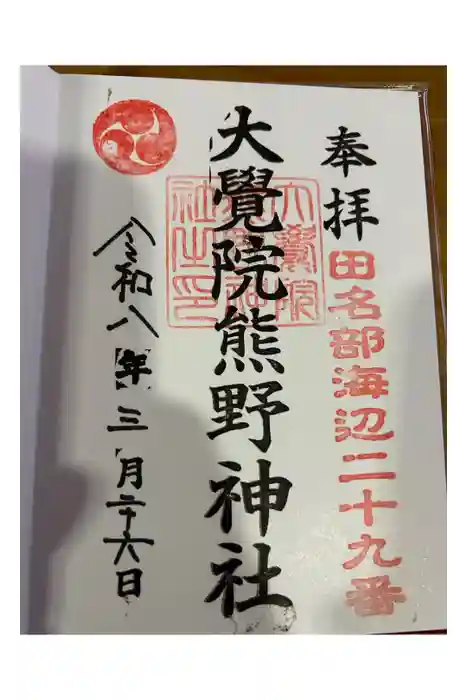 奉拝
田名部海辺二十九番
大覺院熊野神社
大覺院熊野神社之印
令和八年三月二十六日